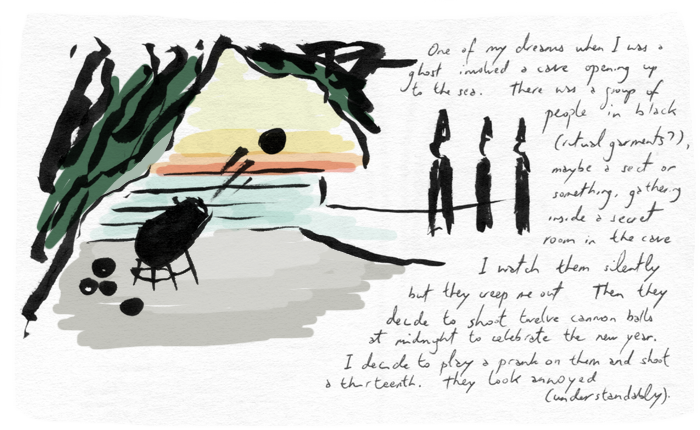 One of my dreams when I was a
ghost involved a cave opening up
to the sea. There was a group of
people in black
(ritual garments?),
maybe a sect or
something, gathering
inside a secret
room in the cave
I watch them silently
but they creep me out Then they
decide to shoot twelve cannon balls
at midnight to celebrate the new year.
I decide to play a prank on them and shoot
a thirteenth. They look annoyed
(understandably).